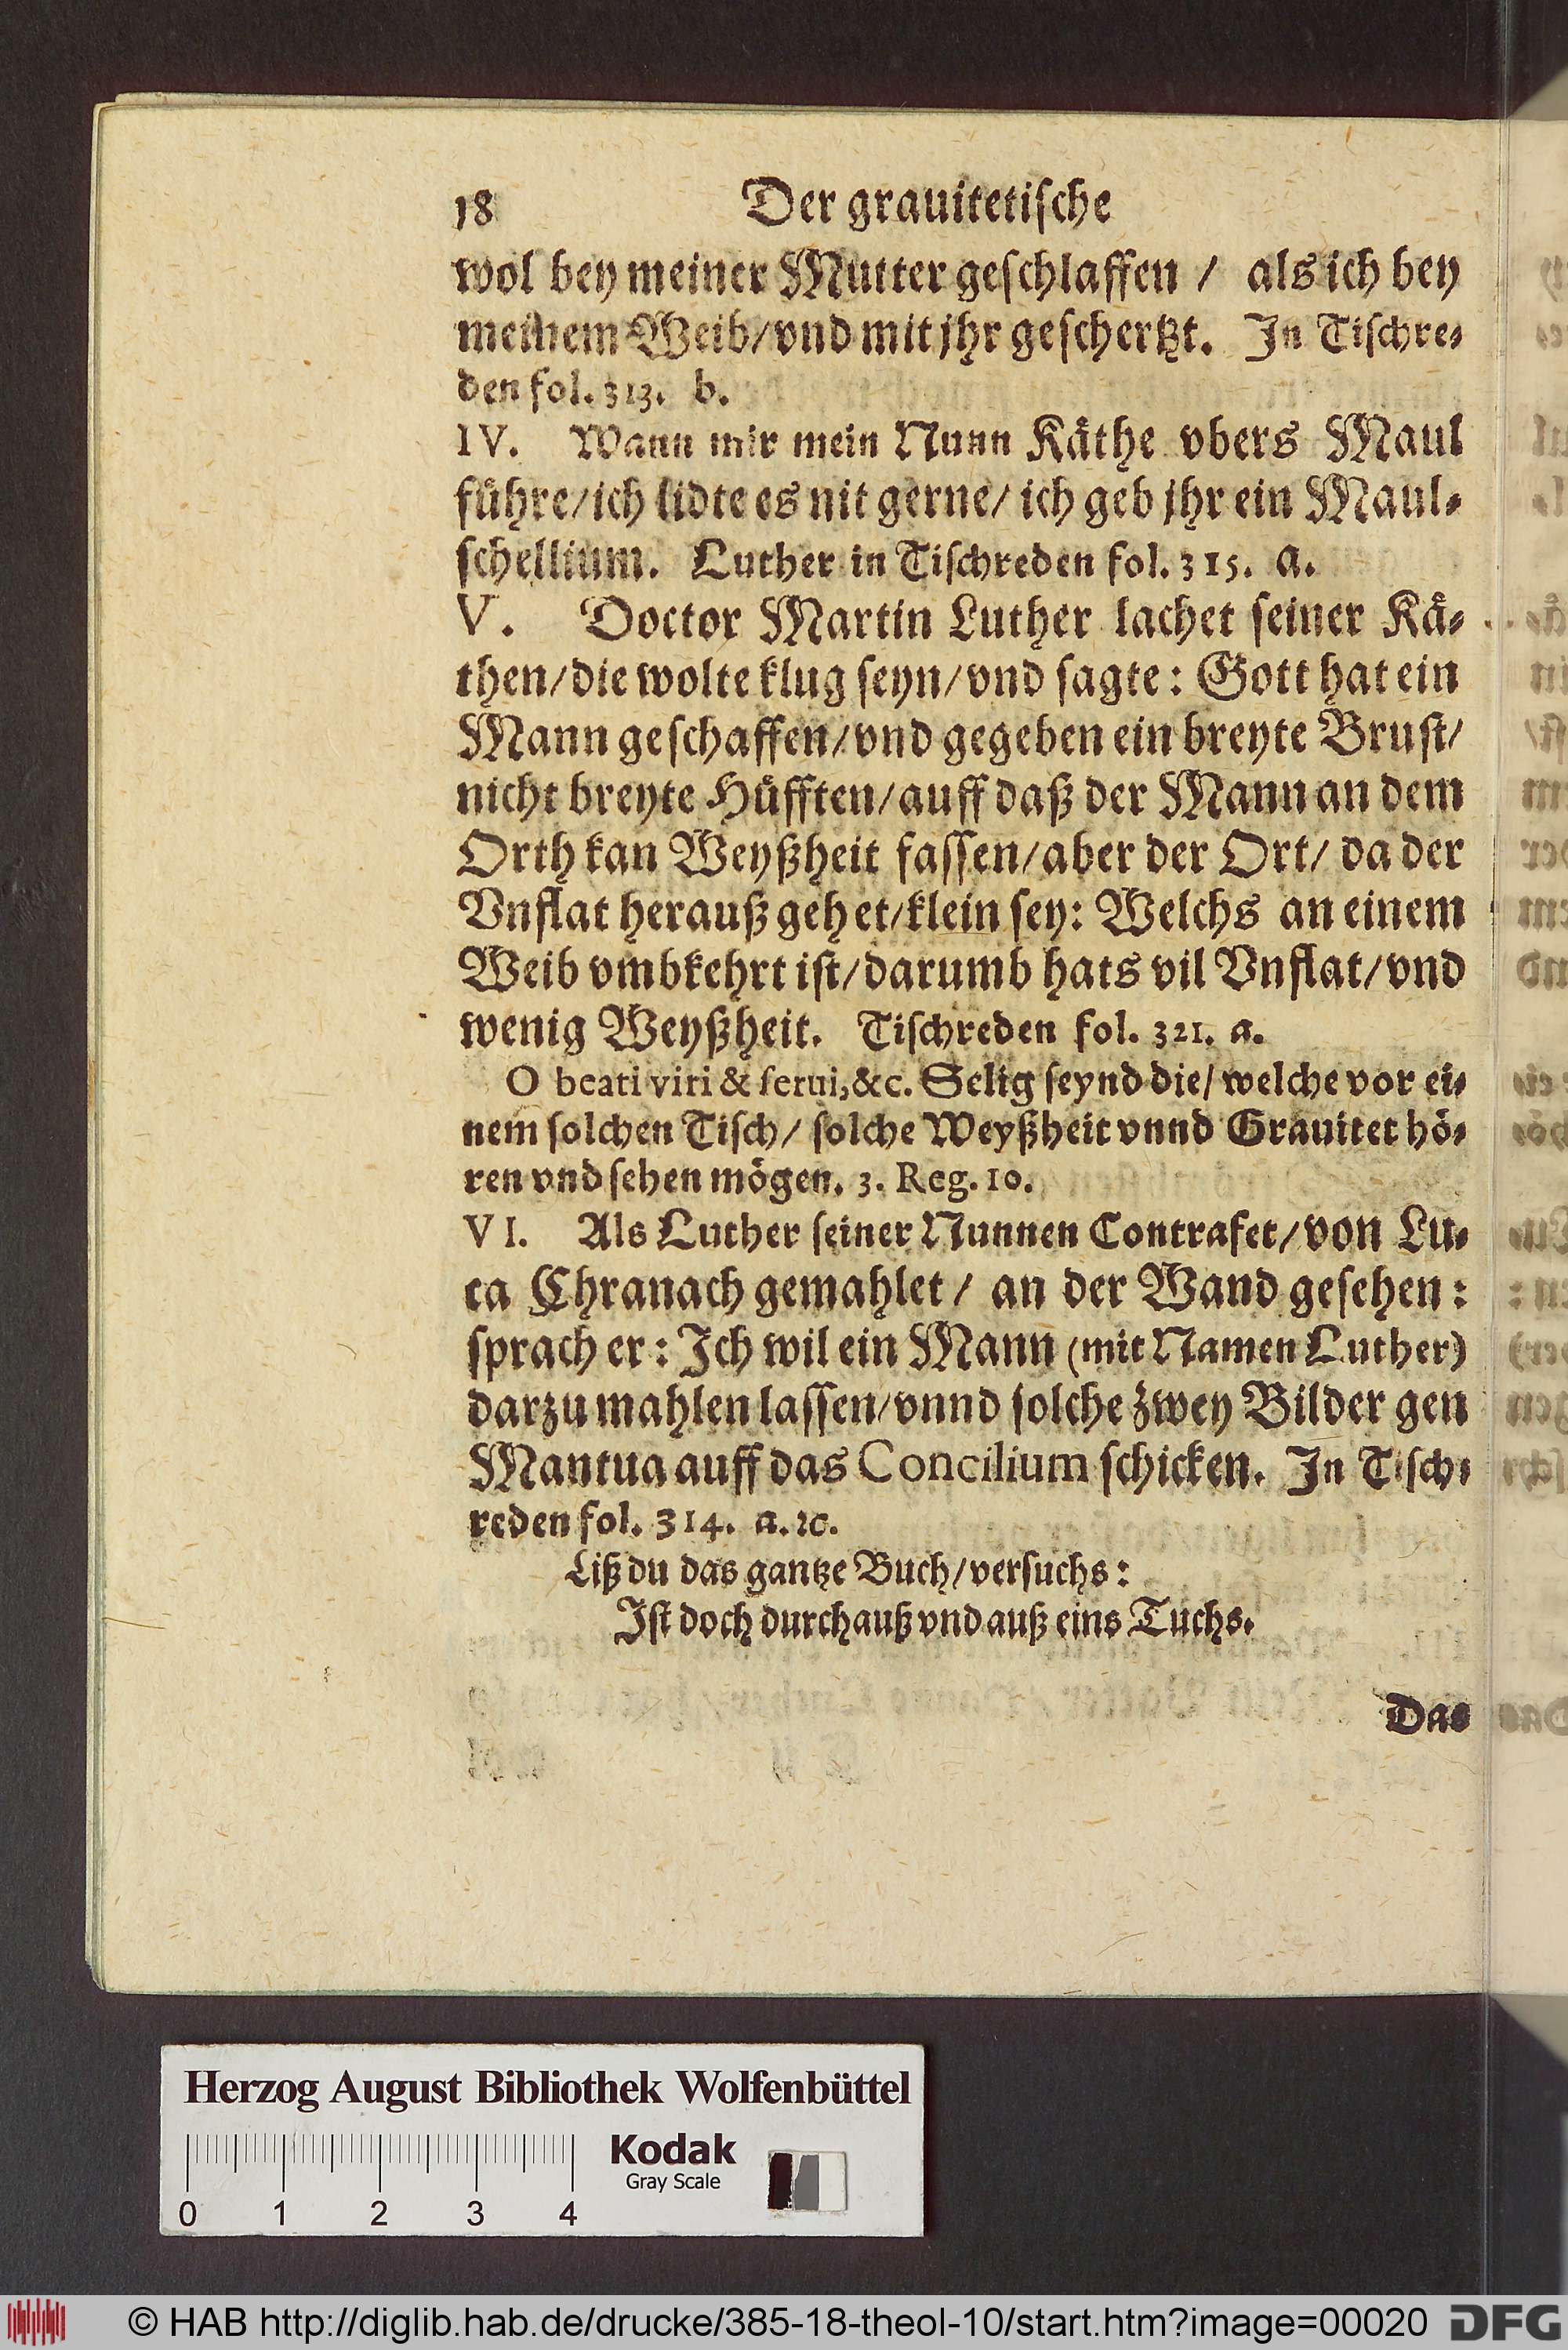 18 Der grauitetiſche
wol bey meiner Mutter geſchlaffen / als ich bey
meinem Weib/vnd mit jhr geſchertzt. In Tiſchre-
den fol. 313. b.
IV. Wann mir mein Nunn Kåthe vbers Maul
führe/ich lidte es nit gerne/ ich geb jhr ein Maul-
ſchellium. Luther in Tiſchreden fol. 315. a.
V. Doctor Martin Luther lachet ſeiner Kå-
then/die wolte klug ſeyn/vnd ſagte: Gott hat ein
Mann geſchaffen/vnd gegeben ein breyte Bruſt/
nicht breyte Hüfften/auff daß der Mann an dem
Orth kan Weyßheit faſſen/aber der Ort/ da der
Vnflat herauß gehet/klein ſey: Welchs an einem
Weib vmbkehrt iſt/darumb hats vil Vnflat/vnd
wenig Weyßheit. Tiſchreden fol. 321. a.
O beati viri & ſerui,&c. Selig ſeynd die/ welche vor ei-
nem ſolchen Tiſch/ ſolche Weyßheit vnnd Grauitet hö-
ren vnd ſehen mögen. 3. Reg. 10.
VI. Als Luther ſeiner Nunnen Contrafet/von Lu-
ca Chranach gemahlet / an der Wand geſehen:
ſprach er: Ich wil ein Mann (mit Namen Luther)
darzu mahlen laſſen/vnnd ſolche zwey Bilder gen
Mantua auff das Concilium ſchicken. In Tiſch-
reden fol. 314. a. ꝛc.
Liß du das gantze Buch/verſuchs:
Iſt doch durchauß vnd auß eins Tuchs.
Das
Herzog August Bibliothek Wolfenbüttel
Kodak
Gray Scale
0 1 2 3 4
© HAB http://diglib.hab.de/drucke/385-18-theol-10/start.htm?image=00020 DFG